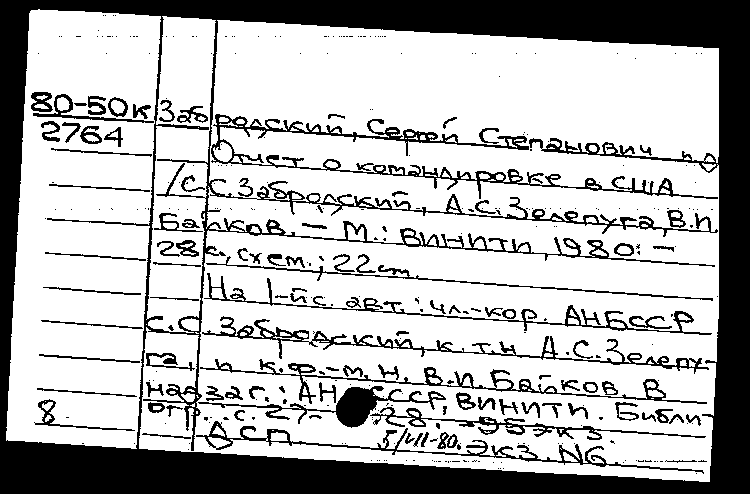 80-50к Забродский, Сергей Степанович
2764
Отчет о командировке в США
/С.С. Забродский, А.С. Зелепуга, В.И.
Байков. — М.: ВИНИТИ, 1980. —
28 с., схем.; 22 cm.
На 1-й с. авт.: чл.-кор. АНБССР
С.С. Забродский, к.т.н А.С. Зелепу-
га, и к.ф.-м.н. В.И. Байков. В
надзаг.: АН СССР, ВИНИТИ. Библи-
огр.: с. 27-28. 95 экз.
8 ДСП 5/VII-80. Экз. N6.